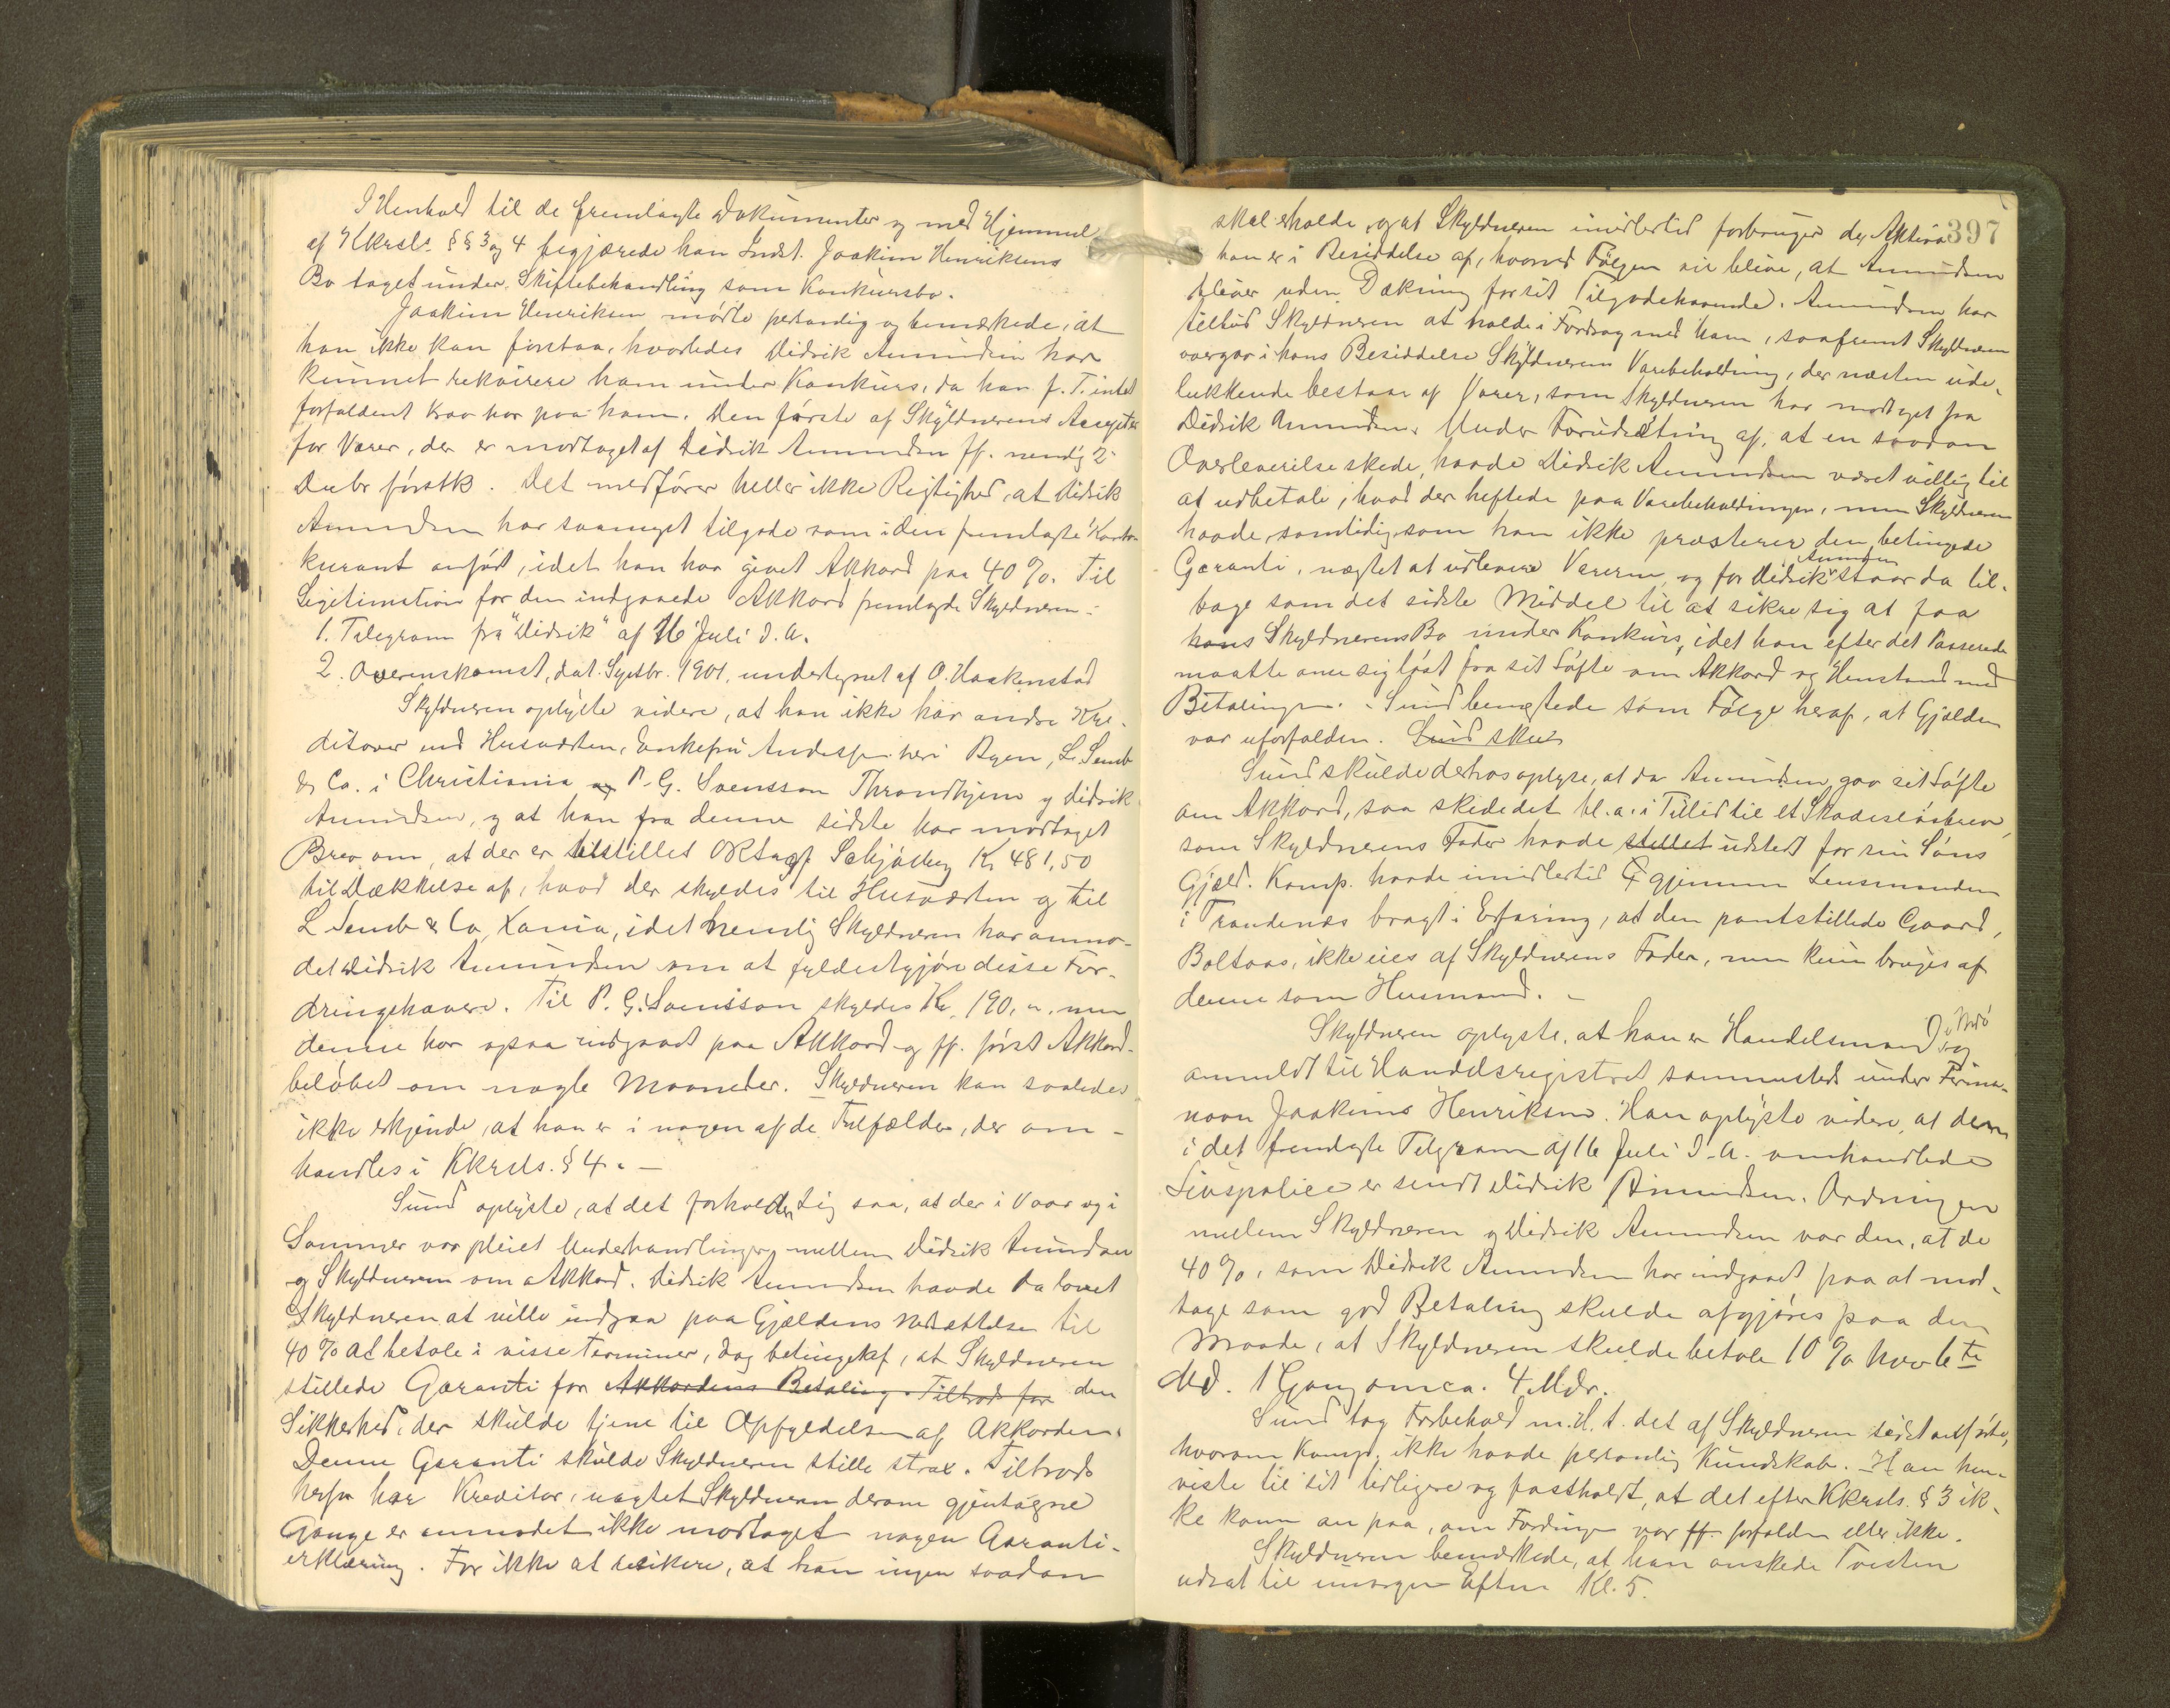 I Henhold til de fremlagte Dokumenter og med Hjemmel
af Kkrsls. §§ 3 og 4 begjærede han Indst. Joakim Henriksens
Bo taget under Skiftebehandling som Konkursbo.
Joakim Henriksen mødte personlig og bemærkede, at
han ikke kan forstaa, hvorledes Didrik Amundsen har
kunnet rekvirere ham under Konkurs, da han p. T. intet
forfaldent Krav har paa ham. Den første af Skyldnerens Accepter
for Varer, der er modtaget af Didrik Amundsen ff. nemlig 2
Debr førstk. Det medfører heller ikke Rigtighed, at Didrik
Amundsen har saameget tilgode som i den fremlagte Konto-
kurant anført, idet han har givet Akkord paa 40 %. Til
Legitimation for den indgaaede Akkord fremlagde Skyldneren:
1. Telegram fra "Didrik" af 16 Juli d. A.
2. Overenskomst, dat. Septbr. 1901, undertegnet af O. Haakenstad
Skyldneren oplyste videre, at han ikke har andre Kre-
ditorer end Husværten, Enkefru Andersen her i Byen, L. Semb
& Co. i Christiania og P. G. Svensson Throndhjem og Didrik
Amundsen, og at han fra denne sidste har modtaget
Brev om, at der er tilstillet ORSagf Schjødberg Kr 481,50
til Dækkelse af, hvad der skyldes til Husværten og til
L Semb & Co, Xania, idet nemlig Skyldneren har anmo-
det Didrik Amundsen om at fyldestgjøre disse For-
dringshavere. Til P. G. Svensson skyldes Kr. 190, ", men
denne har ogsaa indgaaet paa Akkord og ff. først Akkord-
beløbet om nogle Maaneder. Skyldneren kan saaledes
ikke erkjende, at han er i nogen af de Tilfælder, der om-
handles i Kkrsls. § 4. —
Sund oplyste, at det forholder sig saa, at der i Vaar og i
Sommer var pleiet Underhandlinger mellem Didrik Amundsen
og Skyldneren om Akkord. Didrik Amundsen havde da lovet
Skyldneren at ville indgaa paa Gjældens Nedsættelse til
40 % at betale i visse Terminer, dog betinget af, at Skyldneren
stillede Garanti for Akkordens Betaling. Tiltrods for den
Sikkerhed, der skulde tjene til Opfyldelsen af Akkorden.
Denne Garanti skulde Skyldneren stille strax. Tiltrods
herfor har Kreditor, uagtet Skyldneren derom gjentagne
Gange er anmodet ikke modtaget nogen Garanti-
erklæring. For ikke at risikere, at han ingen saadan
397
skal erholde, og at Skyldneren imidlertid forbruger de Aktiva
han er i Besiddelse af, hvorved Følgen vil blive, at Amundsen
bliver uden Dækning for sit Tilgodehavende. Amundsen har
tilbud Skyldneren at holde i Fordrag med ham, saafremt Skyldneren
overgav i hans Besiddelse Skyldnerens Varebeholdning, der næsten ude-
lukkende bestaar af Varer, som Skyldneren har modtaget fra
Didrik Amundsen. Under Forudsætning af, at en saadan
Overleverelse skede, havde Didrik Amundsen været villig til
at udbetale, hvad der heftede paa Varebeholdningen, men Skyldneren
havde, samtidig som han ikke præsterer den betingede
Garanti, nægtet at udlevere Varerne, og for Didrik Amundsen staar da til-
bage som det sidste Middel til at sikre sig at faa
hans Skyldnerens Bo under Konkurs, idet han efter det Passerede
maatte anse sig løst fra sit Løfte om Akkord og Henstand med
Betalingen. Sund benægtede som Følge heraf, at Gjælden
var uforfalden. Sund skul
Sund skulde derhos oplyse, at da Amundsen gav sit Løfte
om Akkord, saa skede det bl. a. i Tillid til et Skadesløsbrev,
som Skyldnerens Fader havde stillet udstedt for sin Søns
Gjæld. Komp. havde imidlertid gjennem Lensmanden
i Trondenæs bragt i Erfaring, at den pantstillede Gaard,
Boltaas, ikke eies af Skyldnerens Fader, men kun bruges af
denne som Husmand. —
Skyldneren oplyste, at han er Handelsmand og
anmeldt til Handelsregistret sammesteds under Firma-
navn Joakims Henriksen. Han oplyste videre, at den
i det fremlagte Telegram af 16 Juli d. A. omhandlede
Livspolice er sendt Didrik Amundsen. Ordningen
mellem Skyldneren og Didrik Amundsen var den, at de
40 %, som Didrik Amundsen har indgaaet paa at mod-
tage som god Betaling skulde afgjøres paa den
Maade, at Skyldneren skulde betale 10 % hver 6te
Md. 1 Gang om ca. 4 Mdr.
Sund tog Forbehold m. H. t. det af Skyldneren sidst anførte,
hvorom Komp. ikke havde personlig Kundskab. Han hen-
viste til sit tidligere og fastholdt, at det efter Kkrsls. § 3 ik-
ke kom an paa, om Fordringen var ff. forfalden eller ikke.
Skyldneren bemærkede, at han ønskede Tvisten
udsat til imorgen Efterm Kl. 5.